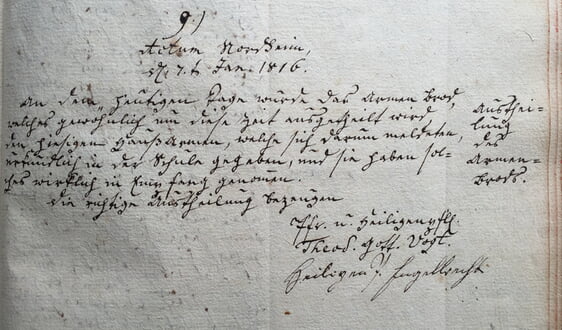 9.)
Actum Nordheim,
d. 7. t. Jan. 1816.
An dem heutigen Tage wurde das Armen Brod,
welches gewöhnlich um diese Zeit ausgetheilt wird,
den hiesigen HaußArmen, welche sich darum meldeten,
in der Schule gegeben, und sie haben sol-
ches wirklich in Empfang genommen.
Die richtige Austheilung bezeugen
Austhei-
lung
des
Armen-
brods.
Pfr. u. Heiligenpfl.
Theod. Gott. Vogt.
Heiligen Engelbrecht